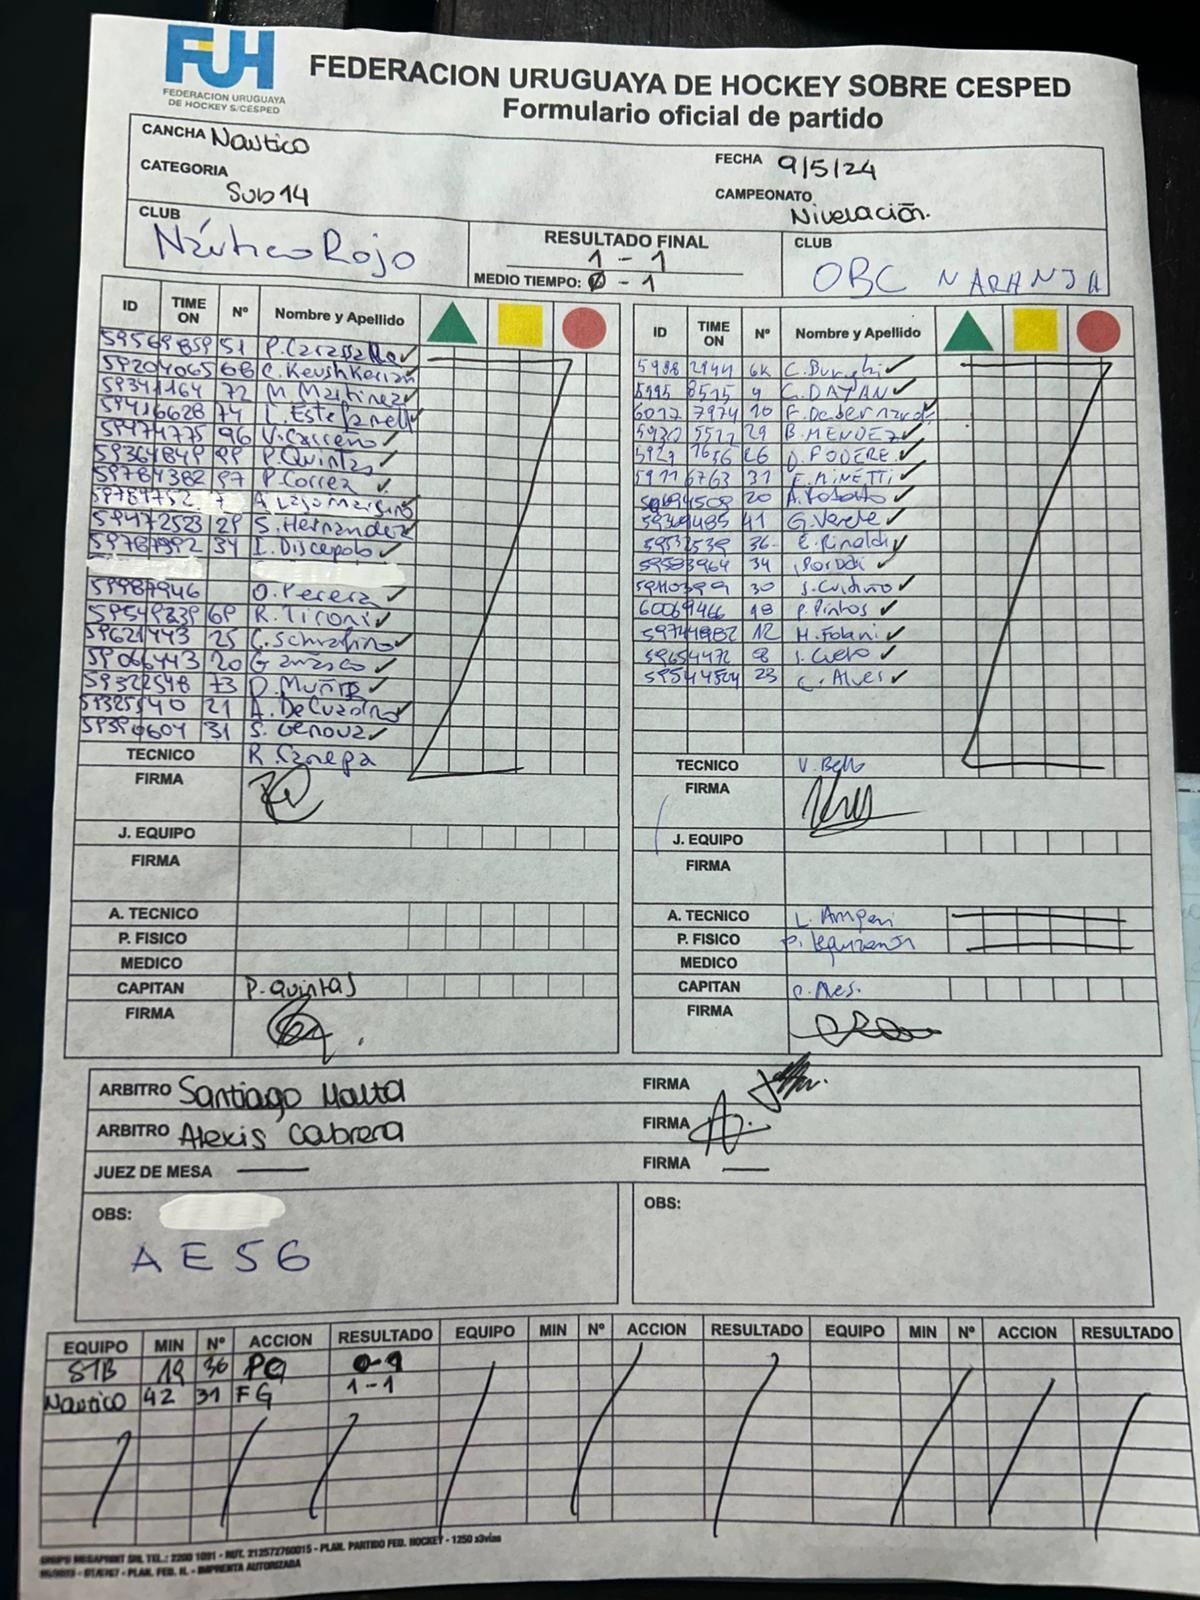 FUH
FEDERACION URUGUAYA
DE HOCKEY S/CESPED
FEDERACION URUGUAYA DE HOCKEY SOBRE CESPED
Formulario oficial de partido
CANCHA Nautico
FECHA 9/5/24
CATEGORIA Sub 14
CAMPEONATO Nivelación.
CLUB Náutico Rojo
RESULTADO FINAL 1 - 1
MEDIO TIEMPO: 0 - 1
CLUB OBC NARANJA
ID TIME ON Nº Nombre y Apellido
59569859 51
59204065 68 C. Keushkerian
59341164 72 M. Martinez
59416628 74
59474775 96 V. Carreño
59364849 99 P. Quintas
59784382 97 P. Correa
59784752 7
59472523 29 S. Hernandez
59787992 34 I. Discepolo
59987946 O. Perera
59549239 69 R. Tironi
59621443 25
59066443 20
59322548 73 D. Muñiz
21
31 S. Genova
TECNICO R. Canepa
FIRMA
J. EQUIPO
FIRMA
A. TECNICO
P. FISICO
MEDICO
CAPITAN P. Quintas
FIRMA
ID TIME ON Nº Nombre y Apellido
5988 2944 6K
5995 8515 9 C. DAYAN
6012 7974 10
5930 5522 29 B. MENDEZ
26 D. FODERE
59116763 31 F. MINETTI
20
59369485 41 G. Verde
59532539 36 E. Rinaldi
59583964 34
59110399 30
60069466 18 P. Pintos
59744982 12
59654472 8
59544504 23 C. Alves
TECNICO V. Bello
FIRMA
J. EQUIPO
FIRMA
A. TECNICO L.
P. FISICO
MEDICO
CAPITAN
FIRMA
ARBITRO Santiago Malta FIRMA
ARBITRO Alexis Cabrera FIRMA
JUEZ DE MESA FIRMA
OBS:
AE56
OBS:
EQUIPO MIN Nº ACCION RESULTADO EQUIPO MIN Nº ACCION RESULTADO EQUIPO MIN Nº ACCION RESULTADO
STB 19 36 0-1
Nautico 42 31 FG 1-1
GRUPO MEGAPRINT SRL TEL.: 2200 1091 - RUT. 212572760015 - PLAN. PARTIDO FED. HOCKEY - 1250 x3vias
PLAN. FED. H. - IMPRENTA AUTORIZADA